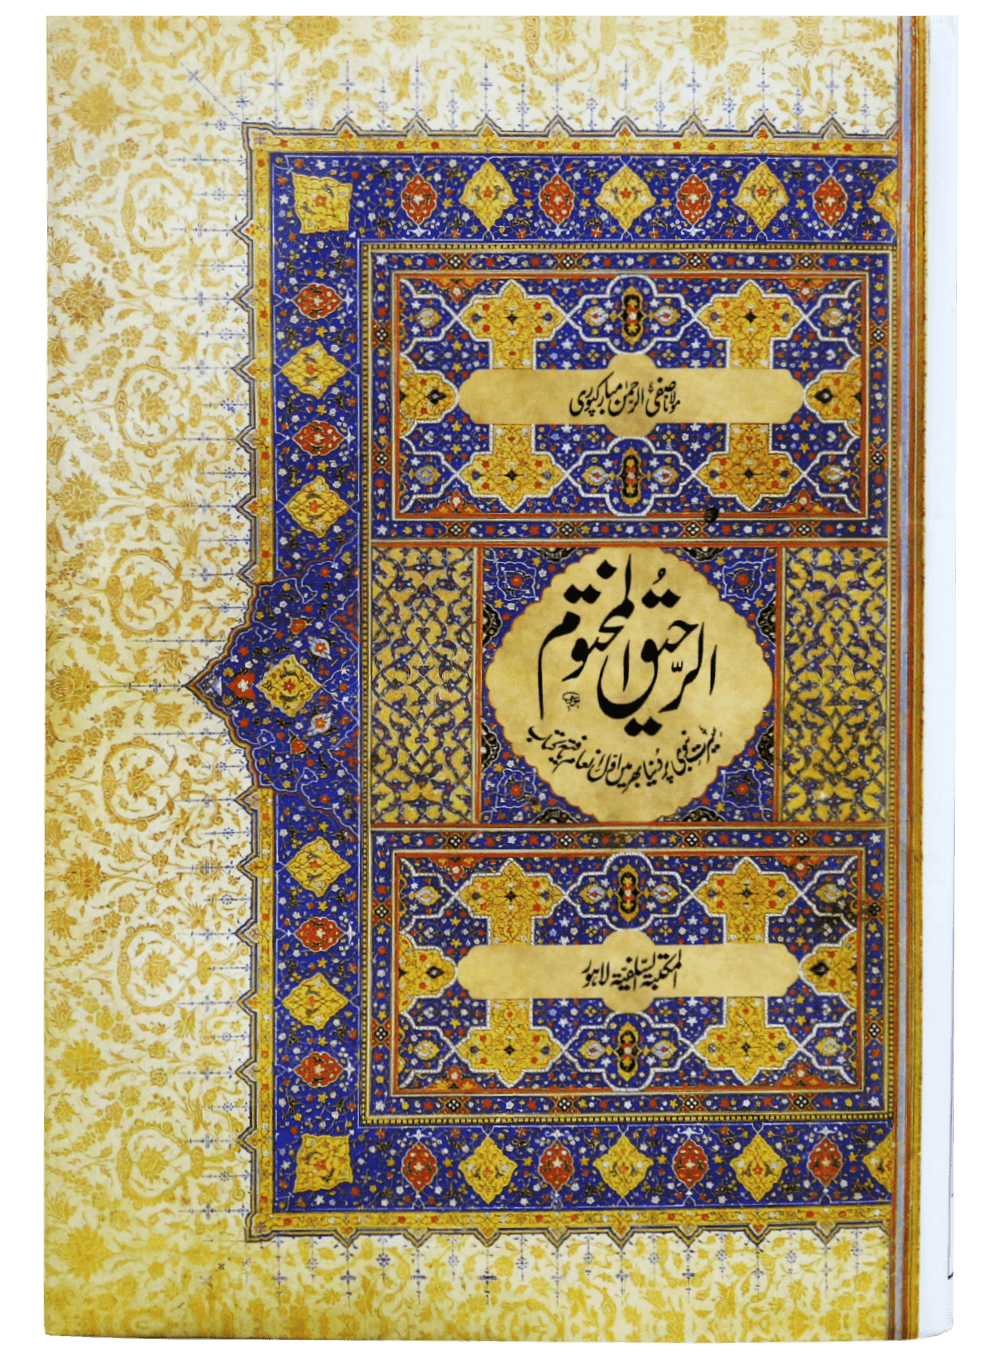 مولانا صفی الرحمٰن مبارکپوری
الرَّحیقُ المختوم
سیرت نبوی پر دُنیا بھر میں اوّل انعام یافتہ کتاب
المکتبۃ السّلفیۃ لاہور